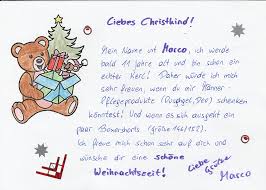 Liebes Christkind!
Mein Name ist Marco, ich werde
bald 11 Jahre alt und bin schon ein
echter Kerl! Daher würde ich mich
sehr freuen, wenn du mir Männer-
Pflegeprodukte (Duschgel, Deo) schenken
könntest! Und wenn es sich ausgeht ein
paar Boxershorts (Größe 146/152).
Ich freue mich schon sehr auf dich und
wünsche dir eine schöne
Weihnachtszeit!
Liebe Grüße
Marco